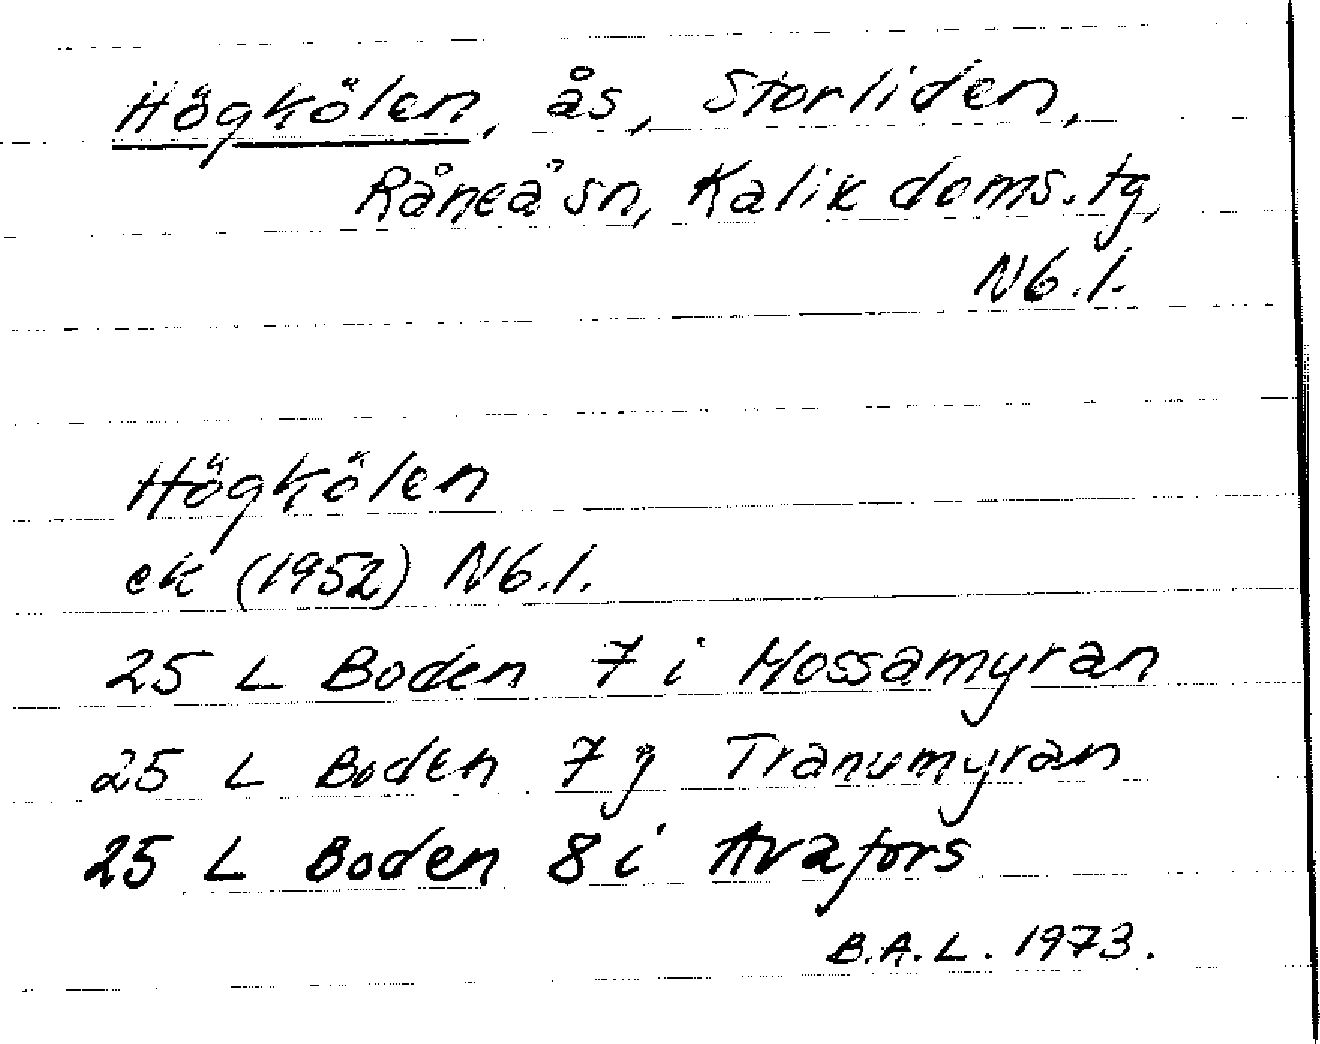 Högkölen, ås, Storliden,
Råneå sn, Kalix doms. tg,
Nb. l.
Högkölen
ek (1952) Nb. l.
25 L Boden 7 i Mossamyran
25 L Boden 7 j Tranumyran
25 L Boden 8 i Avafors
B.A.L. 1973.